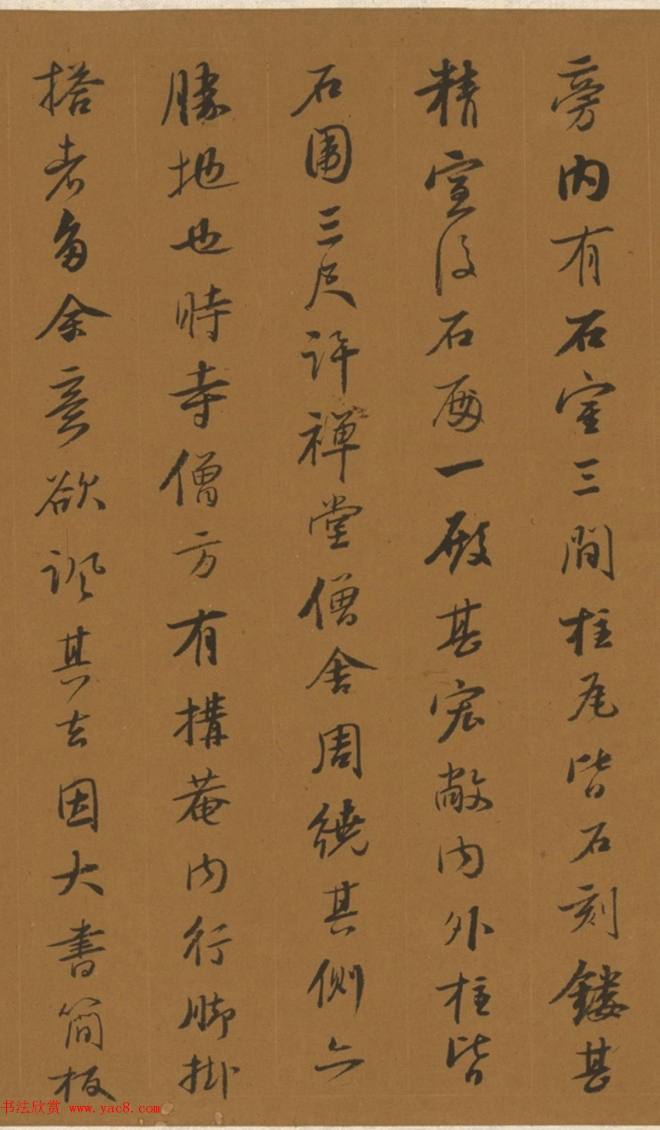 旁内有石室三間柱瓦皆石刻鏤甚
精室後石爾一殿甚宏敞内外柱皆
石圍三尺許禪堂僧舍周繞其側亦
勝地也時寺僧方有構菴内行脚掛
搭者多余意欲諷其去因大書簡板
书法欣赏 www.yac8.com